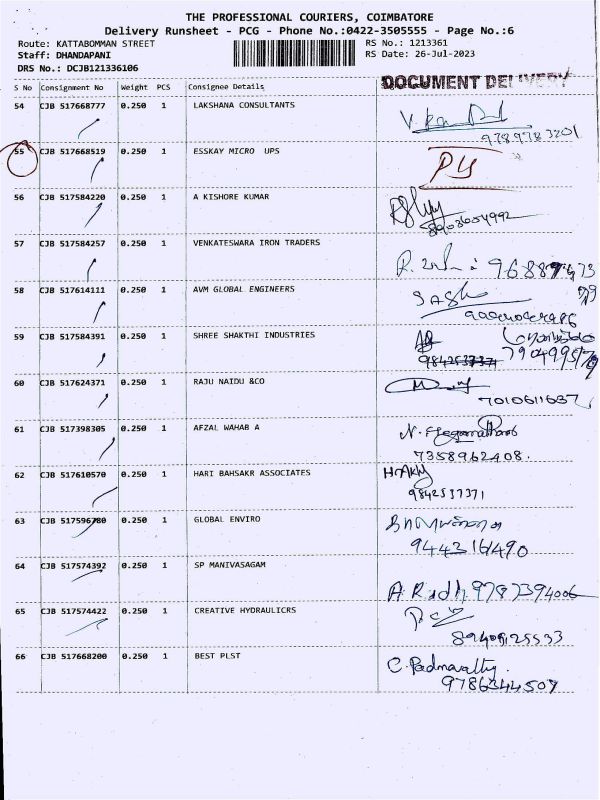 THE PROFESSIONAL COURIERS, COIMBATORE
Delivery Runsheet - PCG - Phone No.:0422-3505555 - Page No.:6
Route: KATTABOMMAN STREET RS No.: 1213361
Staff: DHANDAPANI RS Date: 26-Jul-2023
DRS No.: DCJB121336106
DOCUMENT DELIVERY
S No Consignment No Weight PCS Consignee Details
54 CJB 517668777 0.250 1 LAKSHANA CONSULTANTS
9789783201
55 CJB 517668519 0.250 1 ESSKAY MICRO UPS
56 CJB 517584220 0.250 1 A KISHORE KUMAR
8903654992
57 CJB 517584257 0.250 1 VENKATESWARA IRON TRADERS
58 CJB 517614111 0.250 1 AVM GLOBAL ENGINEERS
59 CJB 517584391 0.250 1 SHREE SHAKTHI INDUSTRIES
60 CJB 517624371 0.250 1 RAJU NAIDU &CO
7010611637
61 CJB 517398305 0.250 1 AFZAL WAHAB A
7358962408.
62 CJB 517610570 0.250 1 HARI BAHSAKR ASSOCIATES
9842537371
63 CJB 517596780 0.250 1 GLOBAL ENVIRO
9443161490
64 CJB 517574392 0.250 1 SP MANIVASAGAM
9787394006
65 CJB 517574422 0.250 1 CREATIVE HYDRAULICRS
8940125533
66 CJB 517668200 0.250 1 BEST PLST
C. Padmavathy.
9786344509